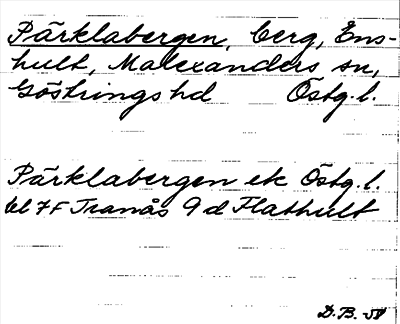 Pärklabergen, berg, Ens-
hult, Malexanders sn,
Göstrings hd Östg. l.
Pärklabergen ek Östg. l.
bl 7F Tranås 9 d Flathult
D.B.